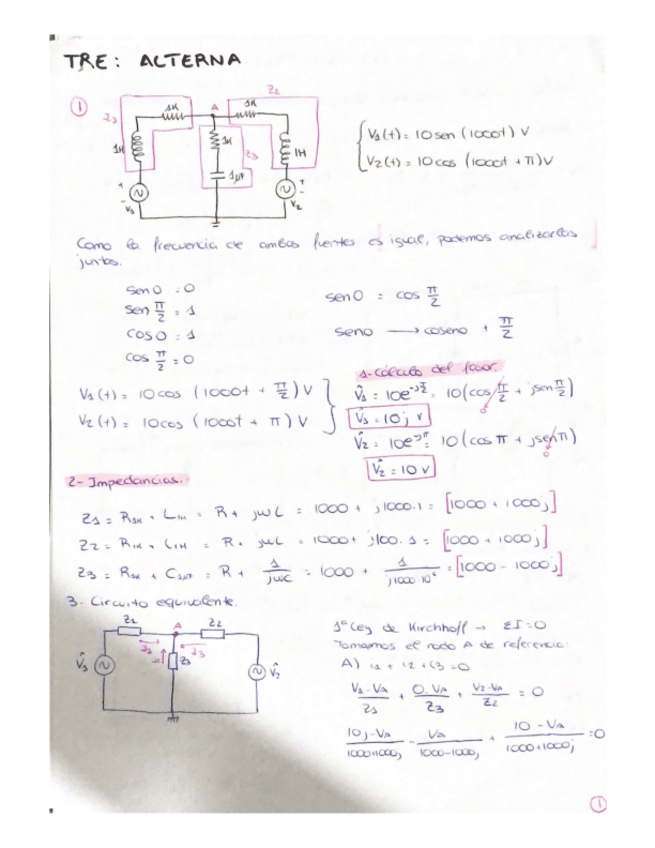 TRE: ALTERNA
1
Z1
1K
A
1K
Z2
1H
1K
Z3
1H
1μF
V1
V2
V1(t) = 10 sen (1000t) V
V2(t) = 10 cos (1000t + π) V
Como la frecuencia de ambas fuentes es igual, podemos analizarlas
juntas.
sen 0 = 0
sen π/2 = 1
cos 0 = 1
cos π/2 = 0
sen 0 = cos π/2
seno → coseno + π/2
1-Cálculo del fasor.
V1(t) = 10 cos (1000t + π/2) V
V2(t) = 10 cos (1000t + π) V
V̂1 = 10e^-jπ/2 = 10 (cos π/2 + j sen π/2)
0
V̂1 = 10j V
V̂2 = 10e^-jπ = 10 (cos π + j sen π)
0
V̂2 = 10 V
2- Impedancias.
Z1 = R1K + L1H = R + jωL = 1000 + j1000·1 = [1000 + 1000j]
Z2 = R1K + L1H = R + jωL = 1000 + j100·1 = [1000 + 1000j]
Z3 = R1K + C1μF = R + 1/jωC = 1000 + 1/j1000·10^6 = [1000 - 1000j]
3- Circuito equivalente.
Z2
A
Z2
Z3
V̂1
V̂2
1ª Ley de Kirchhoff → ΣI = 0
Tomamos el nodo A de referencia:
A) i1 + i2 + i3 = 0
V1-VA/Z1 + 0-VA/Z3 + V2-VA/Z2 = 0
10j-VA/1000+1000j - VA/1000-1000j + 10-VA/1000+1000j = 0
1